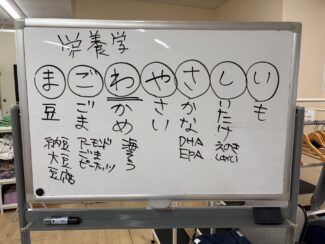 栄養学
まごわやさしい
豆
納豆
大豆
豆腐
ごま
アーモンド
ごま
ピーナッツ
かめ
さい
かな
DHA
EPA
いたけ
えのき
も